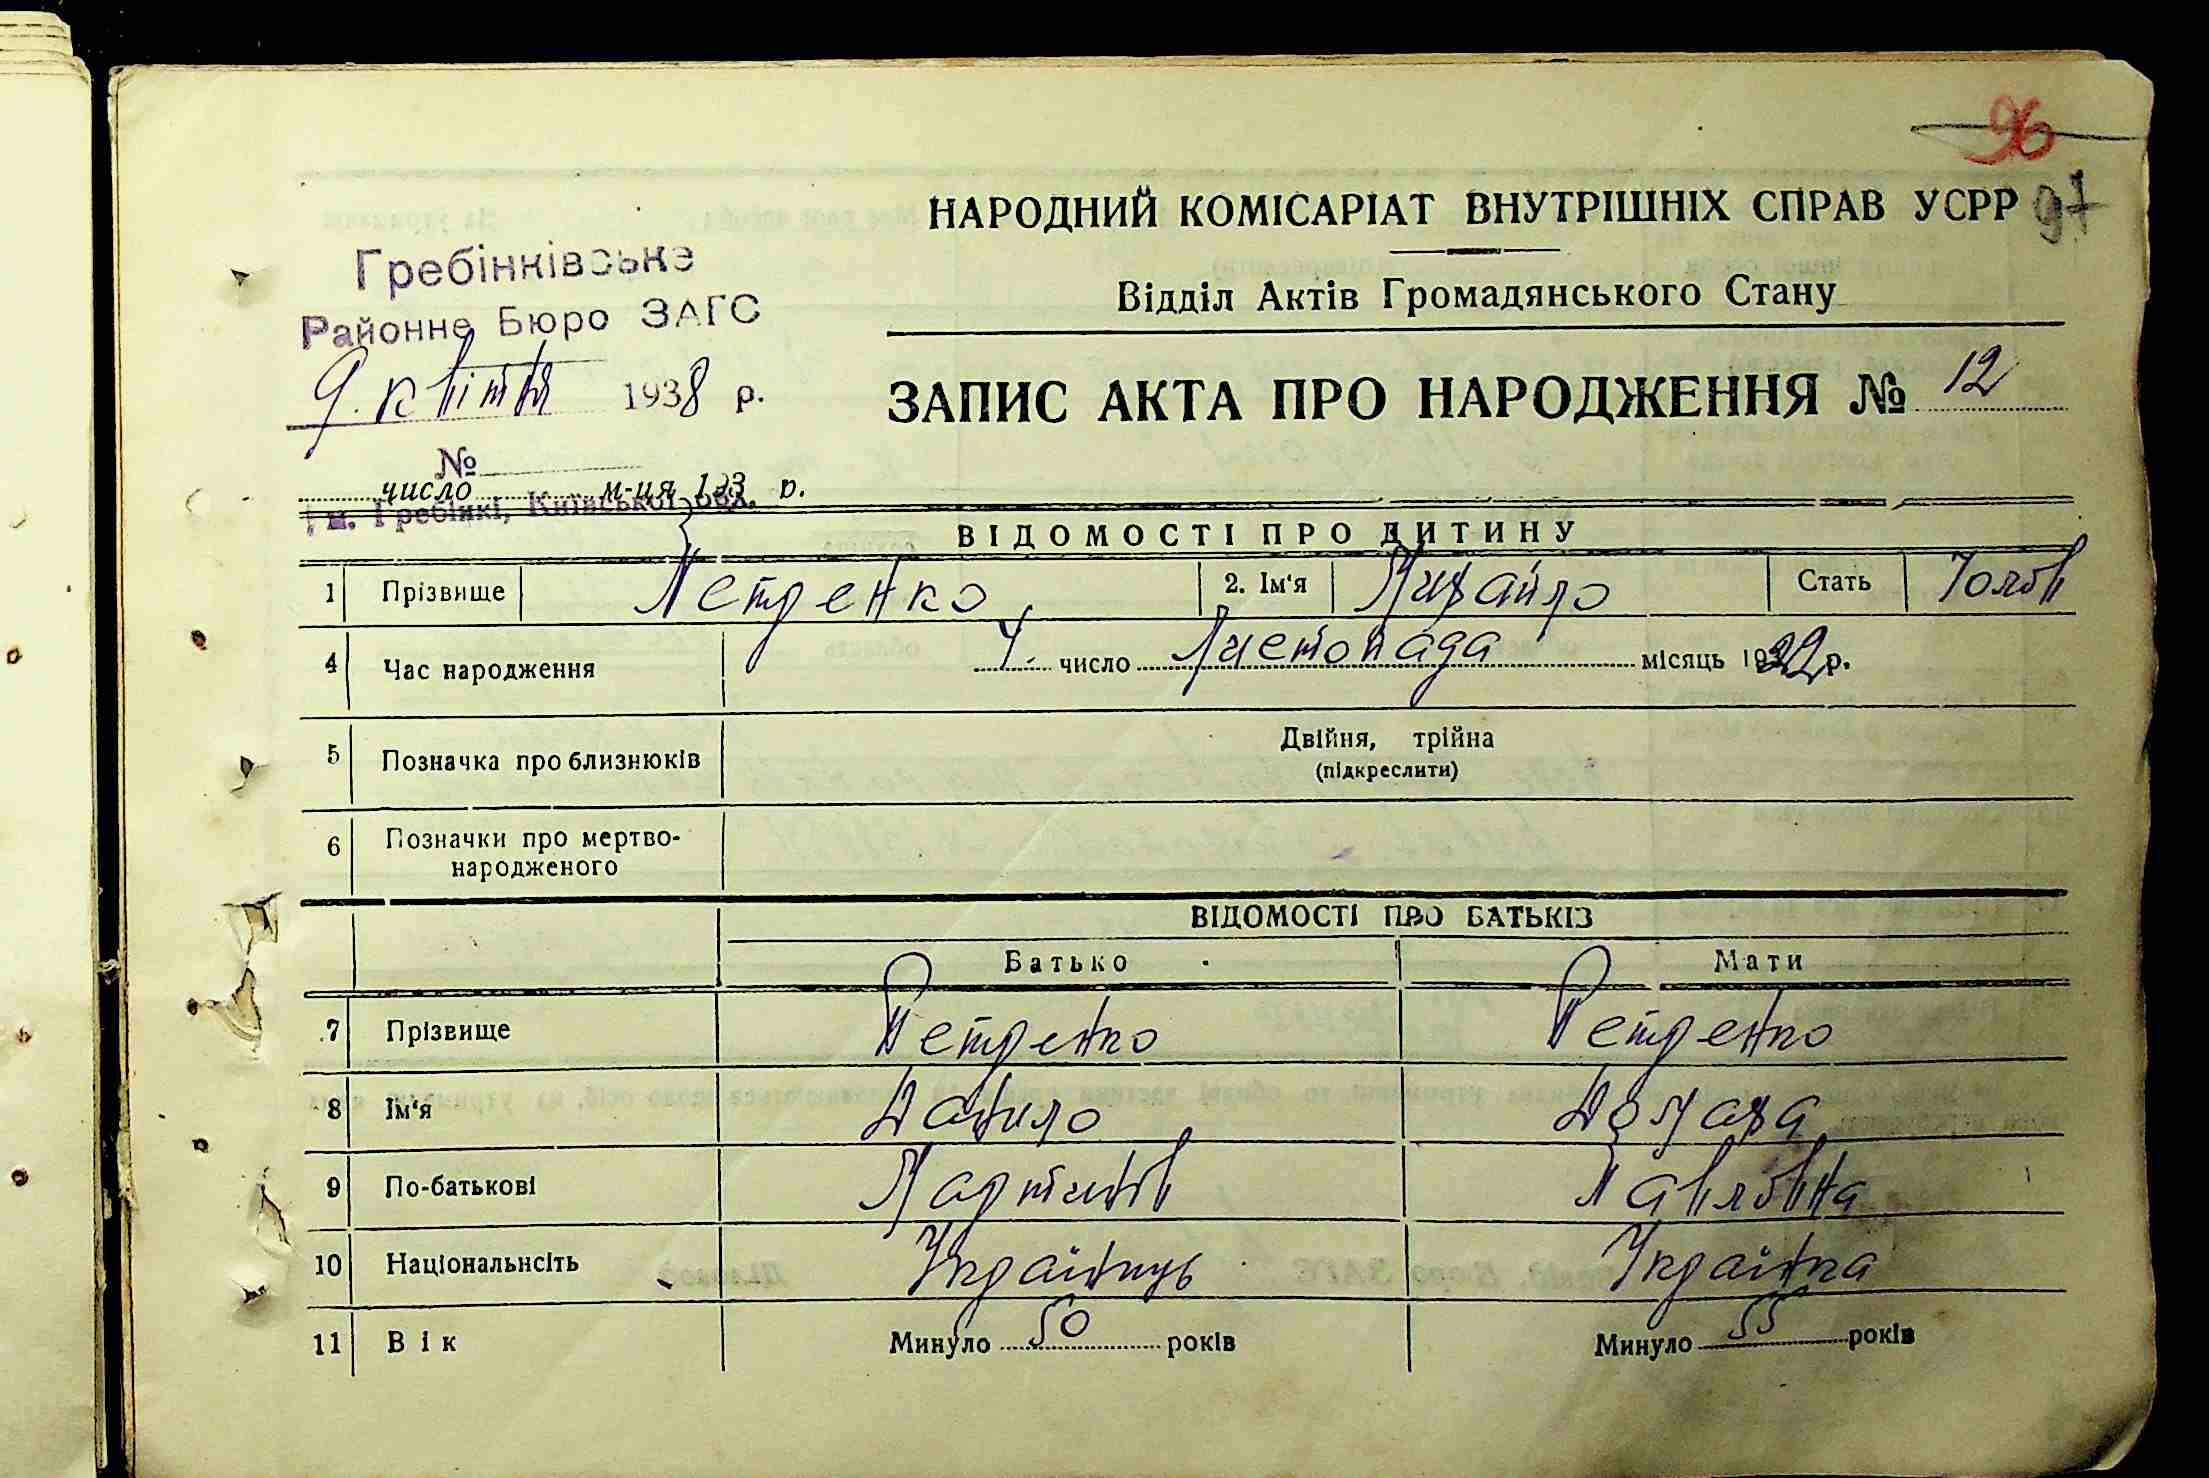 96
97
НАРОДНИЙ КОМІСАРІАТ ВНУТРІШНІХ СПРАВ УСРР
Відділ Актів Громадянського Стану
Гребінківське
Районне Бюро ЗАГС
9. квітня 1938 р.
№
число м-ця 193 р.
м. Гребінкі, Київської обл.
ЗАПИС АКТА ПРО НАРОДЖЕННЯ № 12
ВІДОМОСТІ ПРО ДИТИНУ
1 Прізвище Петренко 2. Ім'я Михайло Стать Чолов
4 Час народження число Листопада місяць 1922 р.
5 Позначка про близнюків Двійня, трійна
(підкреслити)
6 Позначки про мертво-
народженого
ВІДОМОСТІ ПРО БАТЬКІВ
Батько Мати
7 Прізвище Петренко Петренко
8 Ім'я Данило Домаха
9 По-батькові Мартинов Павловна
10 Національнсіть Українець Українка
11 Вік Минуло 50 років Минуло 55 років